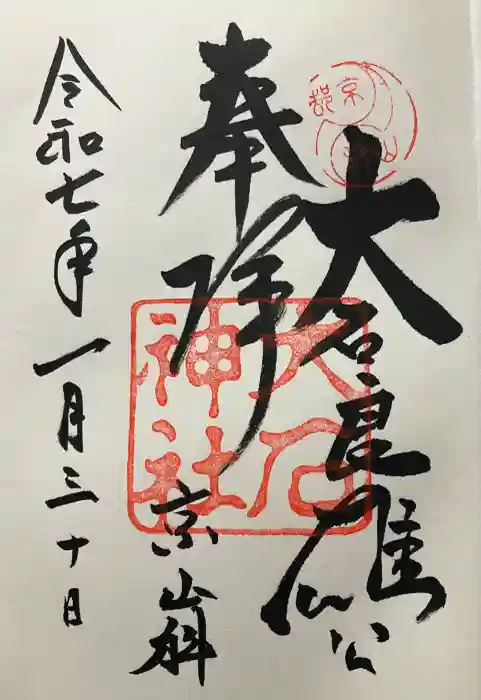 大石良雄公
奉拝
京山科
令和七年 一月三十日
大石
神社
京都